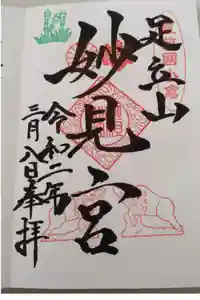 足立山
妙見宮
令和二年
三月八日奉拝